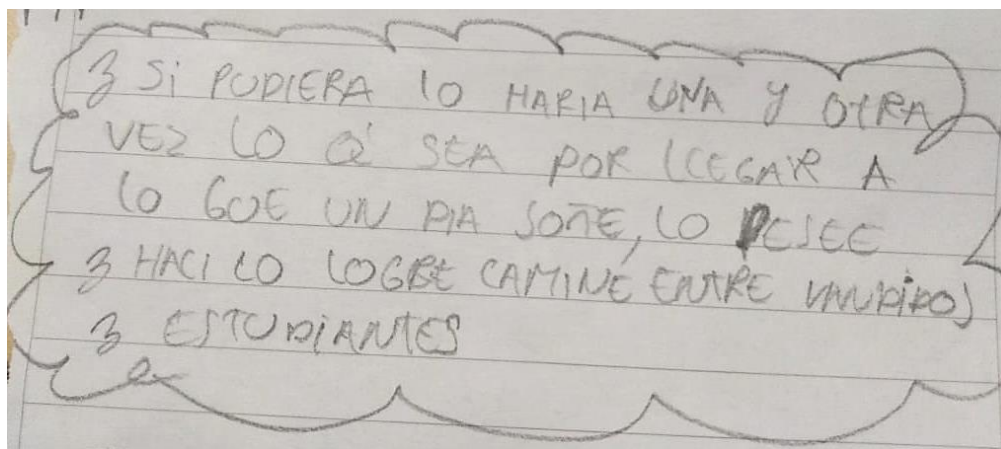 3 Si PUDIERA LO HARIA UNA Y OTRA
VEZ LO Q' SEA POR LLEGAR A
LO GUE UN DIA SOÑE, LO DESEE
3 HACI LO LOGRE CAMINE ENTRE VAMPiROS
3 ESTUDiANTES